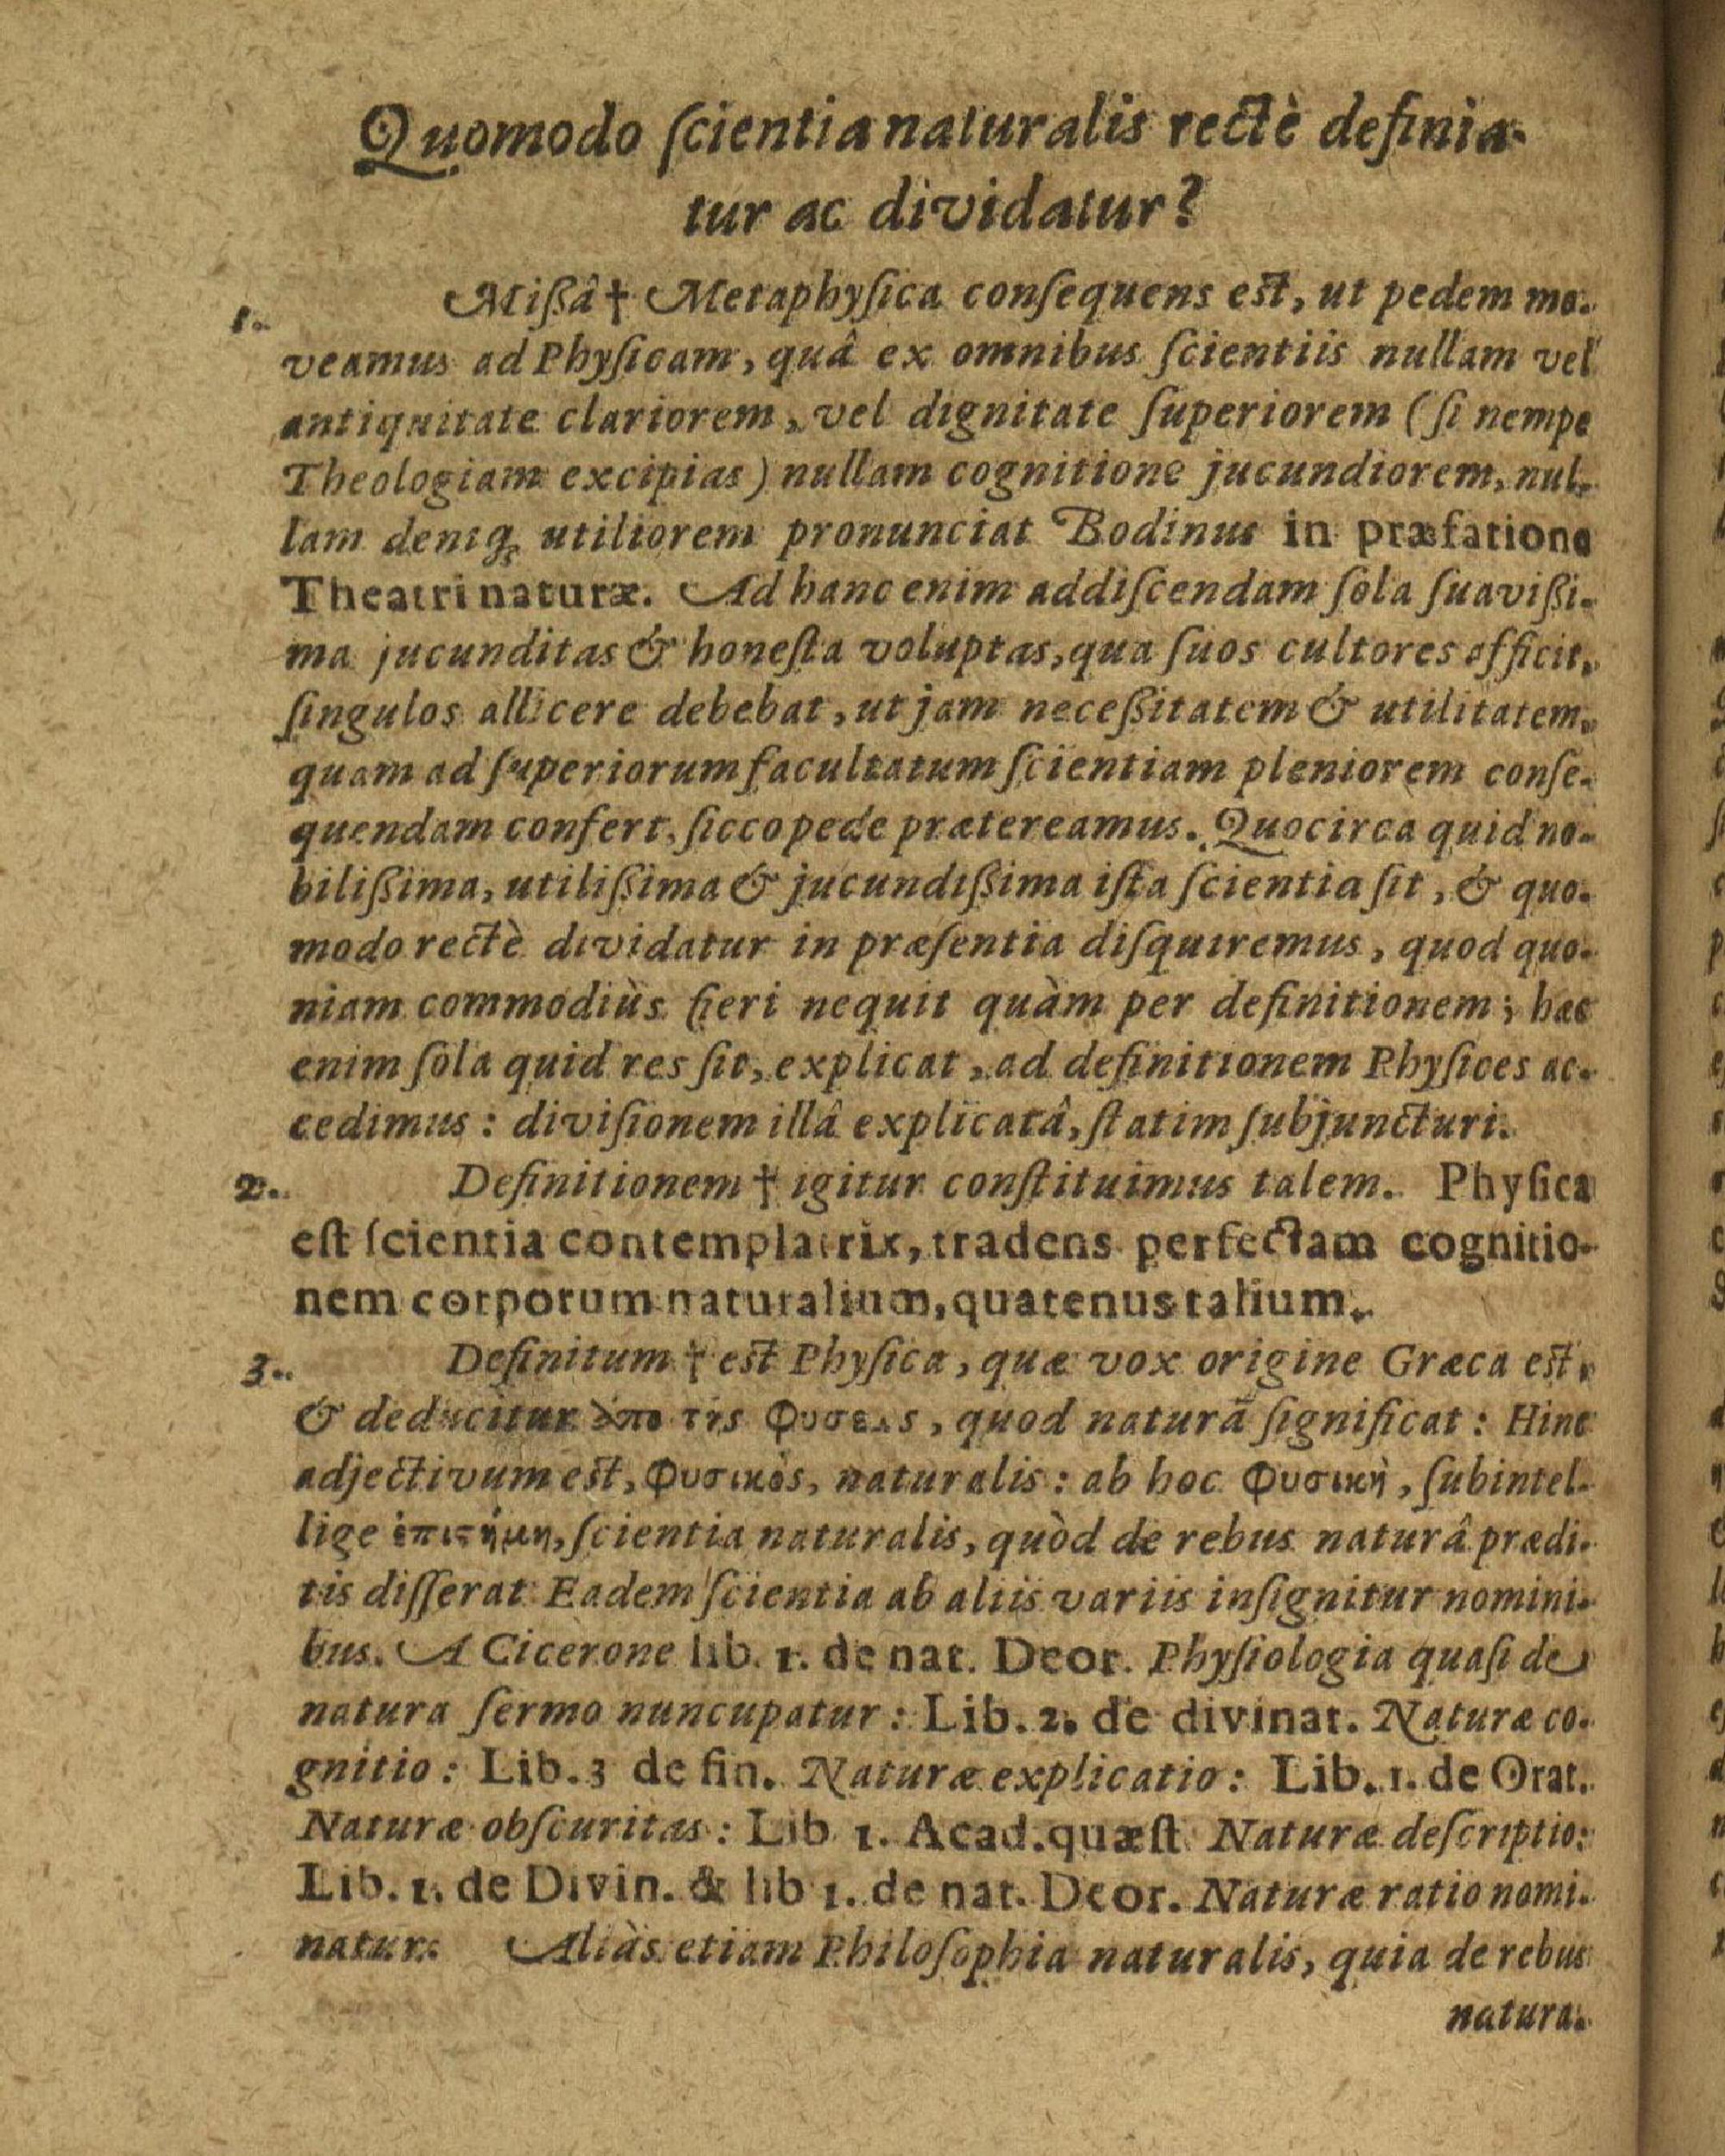 Quomodo ſcientia naturalis rectè definia-
tur ac dividatur?
1. Miſſâ † Metaphyſica conſequens eſt, ut pedem mo-
veamus ad Phyſicam, quâ ex omnibus ſcientiis nullam vel
antiquitate clariorem, vel dignitate ſuperiorem (ſi nempe
Theologiam excipias) nullam cognitione jucundiorem, nul-
lam deniq; utiliorem pronunciat Bodinus in præfatione
Theatri naturæ. Ad hanc enim addiſcendam ſola ſuaviſſi-
ma jucunditas & honeſta voluptas, qua ſuos cultores efficit,
ſingulos allicere debebat, ut jam neceſſitatem & utilitatem,
quam ad ſuperiorum facultatum ſcientiam pleniorem conſe-
quendam confert, ſicco pede prætereamus. Quocirca quid no-
biliſſima, utiliſſima & jucundiſſima iſta ſcientia ſit, & quo-
modo rectè dividatur in præſentia diſquiremus, quod quo-
niam commodiùs fieri nequit quàm per definitionem; hæc
enim ſola quid res ſit, explicat, ad definitionem Phyſices ac-
cedimus: diviſionem illâ explicatâ, ſtatim ſubjuncturi.
2. Definitionem † igitur conſtituimus talem. Phyſica
eſt ſcientia contemplatrix, tradens perfectam cognitio-
nem corporum naturalium, quatenus talium.
3. Definitum † eſt Phyſica, quæ vox origine Græca eſt,
& deducitur ἀπὸ τῆς φυσεως, quod naturã ſignificat: Hinc
adjectivum eſt, φυσικὸς, naturalis: ab hoc φυσικὴ, ſubintel-
lige ἐπιϛήμη, ſcientia naturalis, quòd de rebus naturâ prædi-
tis diſſerat Eadem ſcientia ab aliis variis inſignitur nomini-
bus. A Cicerone lib. 1. de nat. Deor. Phyſiologia quaſi de
natura ſermo nuncupatur: Lib. 2. de divinat. Naturæ co-
gnitio: Lib. 3 de fin. Naturæ explicatio: Lib. 1. de Orat.
Naturæ obſcuritas: Lib 1. Acad. quæſt Naturæ deſcriptio:
Lib. 1. de Divin. & lib 1. de nat. Deor. Naturæ ratio nomi-
natur: Aliàs etiam Philoſophia naturalis, quia de rebus
natura-